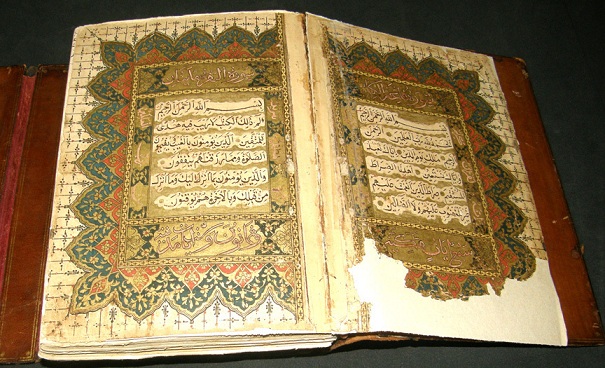 بِسْمِ اللهِ الرَّحْمٰنِ الرَّحِيمِ
الْحَمْدُ لِلّٰهِ رَبِّ الْعٰلَمِينَ الرَّحْمٰنِ
الرَّحِيمِ مٰلِكِ يَوْمِ الدِّينِ اِيَّاكَ نَعْبُدُ
وَاِيَّاكَ نَسْتَعِينُ اِهْدِنَا الصِّرَاطَ
الْمُسْتَقِيمَ صِرَاطَ الَّذِينَ اَنْعَمْتَ عَلَيْهِمْ
غَيْرِ الْمَغْضُوبِ عَلَيْهِمْ وَلَا الضَّالِّينَ
بِسْمِ اللهِ الرَّحْمٰنِ الرَّحِيمِ
الٓمٓ ذٰلِكَ الْكِتٰبُ لَا رَيْبَ فِيهِ هُدًى
لِلْمُتَّقِينَ الَّذِينَ يُؤْمِنُونَ بِالْغَيْبِ وَيُقِيمُونَ
الصَّلٰوةَ وَمِمَّا رَزَقْنٰهُمْ يُنْفِقُونَ
وَالَّذِينَ يُؤْمِنُونَ بِمَا اُنْزِلَ اِلَيْكَ وَمَا اُنْزِلَ
مِنْ قَبْلِكَ وَبِالْاٰخِرَةِ هُمْ يُوقِنُونَ